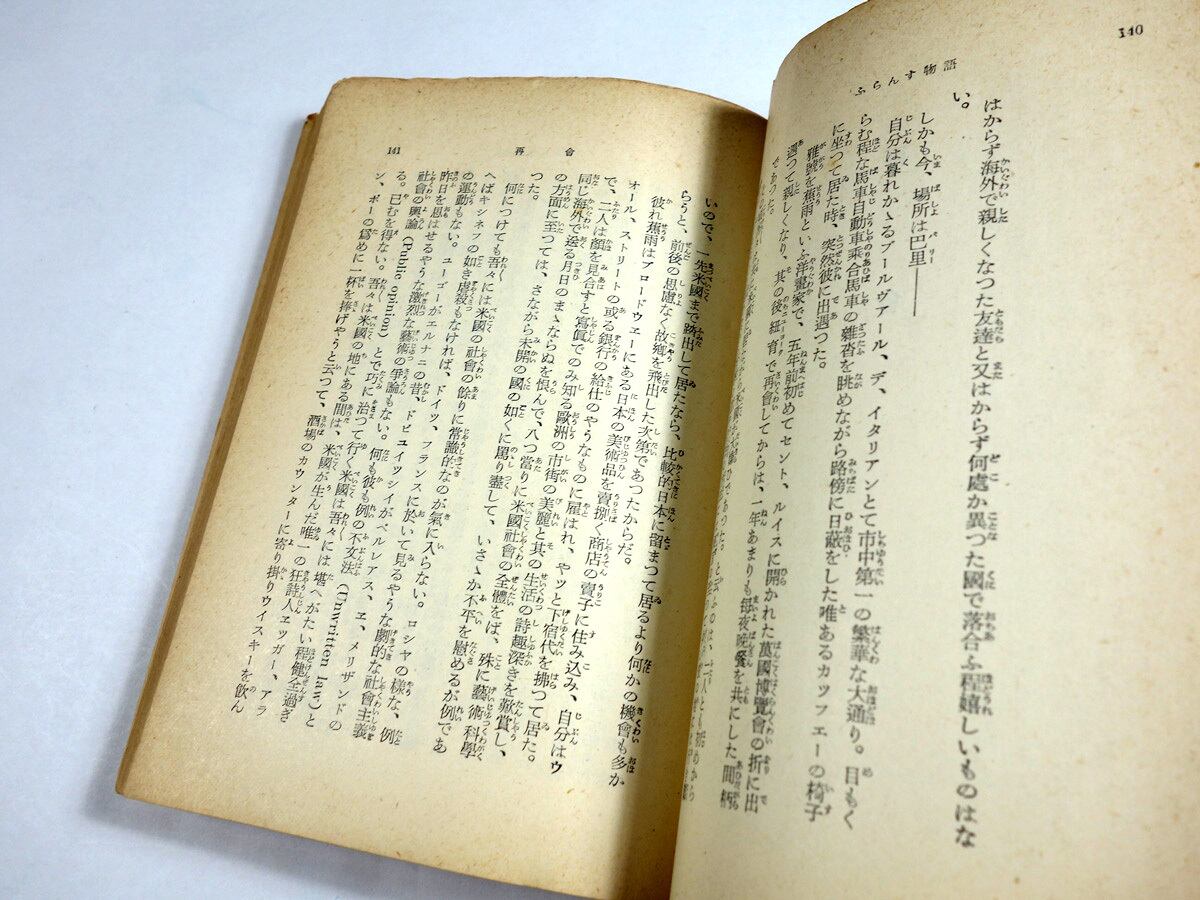 140
ふらんす物語
はからず海外で親しくなつた友達と又はからず何處か異つた國で落合ふ程嬉しいものはな
い。
しかも今、場所は巴里――
自分は暮れかゝるブールヴアール、デ、イタリアンとて市中第一の繁華な大通り。目もく
らむ程な馬車自動車乗合馬車の雜沓を眺めながら路傍に日蔽をした唯あるカツフエーの椅子
に坐つて居た時、突然彼に出遇つた。
雅號を蕉雨といふ洋畫家で、五年前初めてセント、ルイスに開かれた萬國博覽會の折に出
遇つて親しくなり、其の後紐育で再會してからは、一年あまりも毎夜晩餐を共にした間柄
であつた。
141
再會
いので、一先米國まで踏出して居たなら、比較的日本に留まつて居るより何かの機會も多か
らうと、前後の思慮なく故鄕を飛出した次第であつたからだ。
彼れ蕉雨はブロードウェーにある日本の美術品を賣捌く商店の賣子に住み込み、自分はウ
オール、ストリートの或る銀行の給仕のやうなものに雇はれ、やツと下宿代を拂つて居た。
で、二人は顏を見合すと寫眞でのみ知る歐洲の市街の美麗と其の生活の詩趣深きを歎賞し、
同じ海外で送る月日のまゝならぬを恨んで、八つ當りに米國社會の全體をば、殊に藝術科學
の方面に至つては、さながら未開の國の如くに罵り盡して、いさゝか不平を慰めるが例であ
つた。
何につけても吾々には米國の社會の餘りに常識的なのが氣に入らない。ロシヤの樣な、例
へばキシネフの如き虐殺もなければ、ドイツ、フランスに於いて見るやうな劇的な社會主義
の運動もない。ユーゴーがエルナニの昔、ドビユイツシイがペルレアス、エ、メリザンドの
昨日を思はせるやうな激烈な藝術の爭論もない。何も彼も例の不文法 (Unwritten law) と
社會の輿論 (Public opinion) とで巧に治つて行く米國は吾々には堪へがたい程健全過ぎ
る。已むを得ない。吾々は米國の地にある間は、米國が生んだ唯一の狂詩人エッガー、アラ
ン、ポーの爲めに一杯を捧げやうと云つて、酒場のカウンターに寄り掛りウイスキーを飮ん